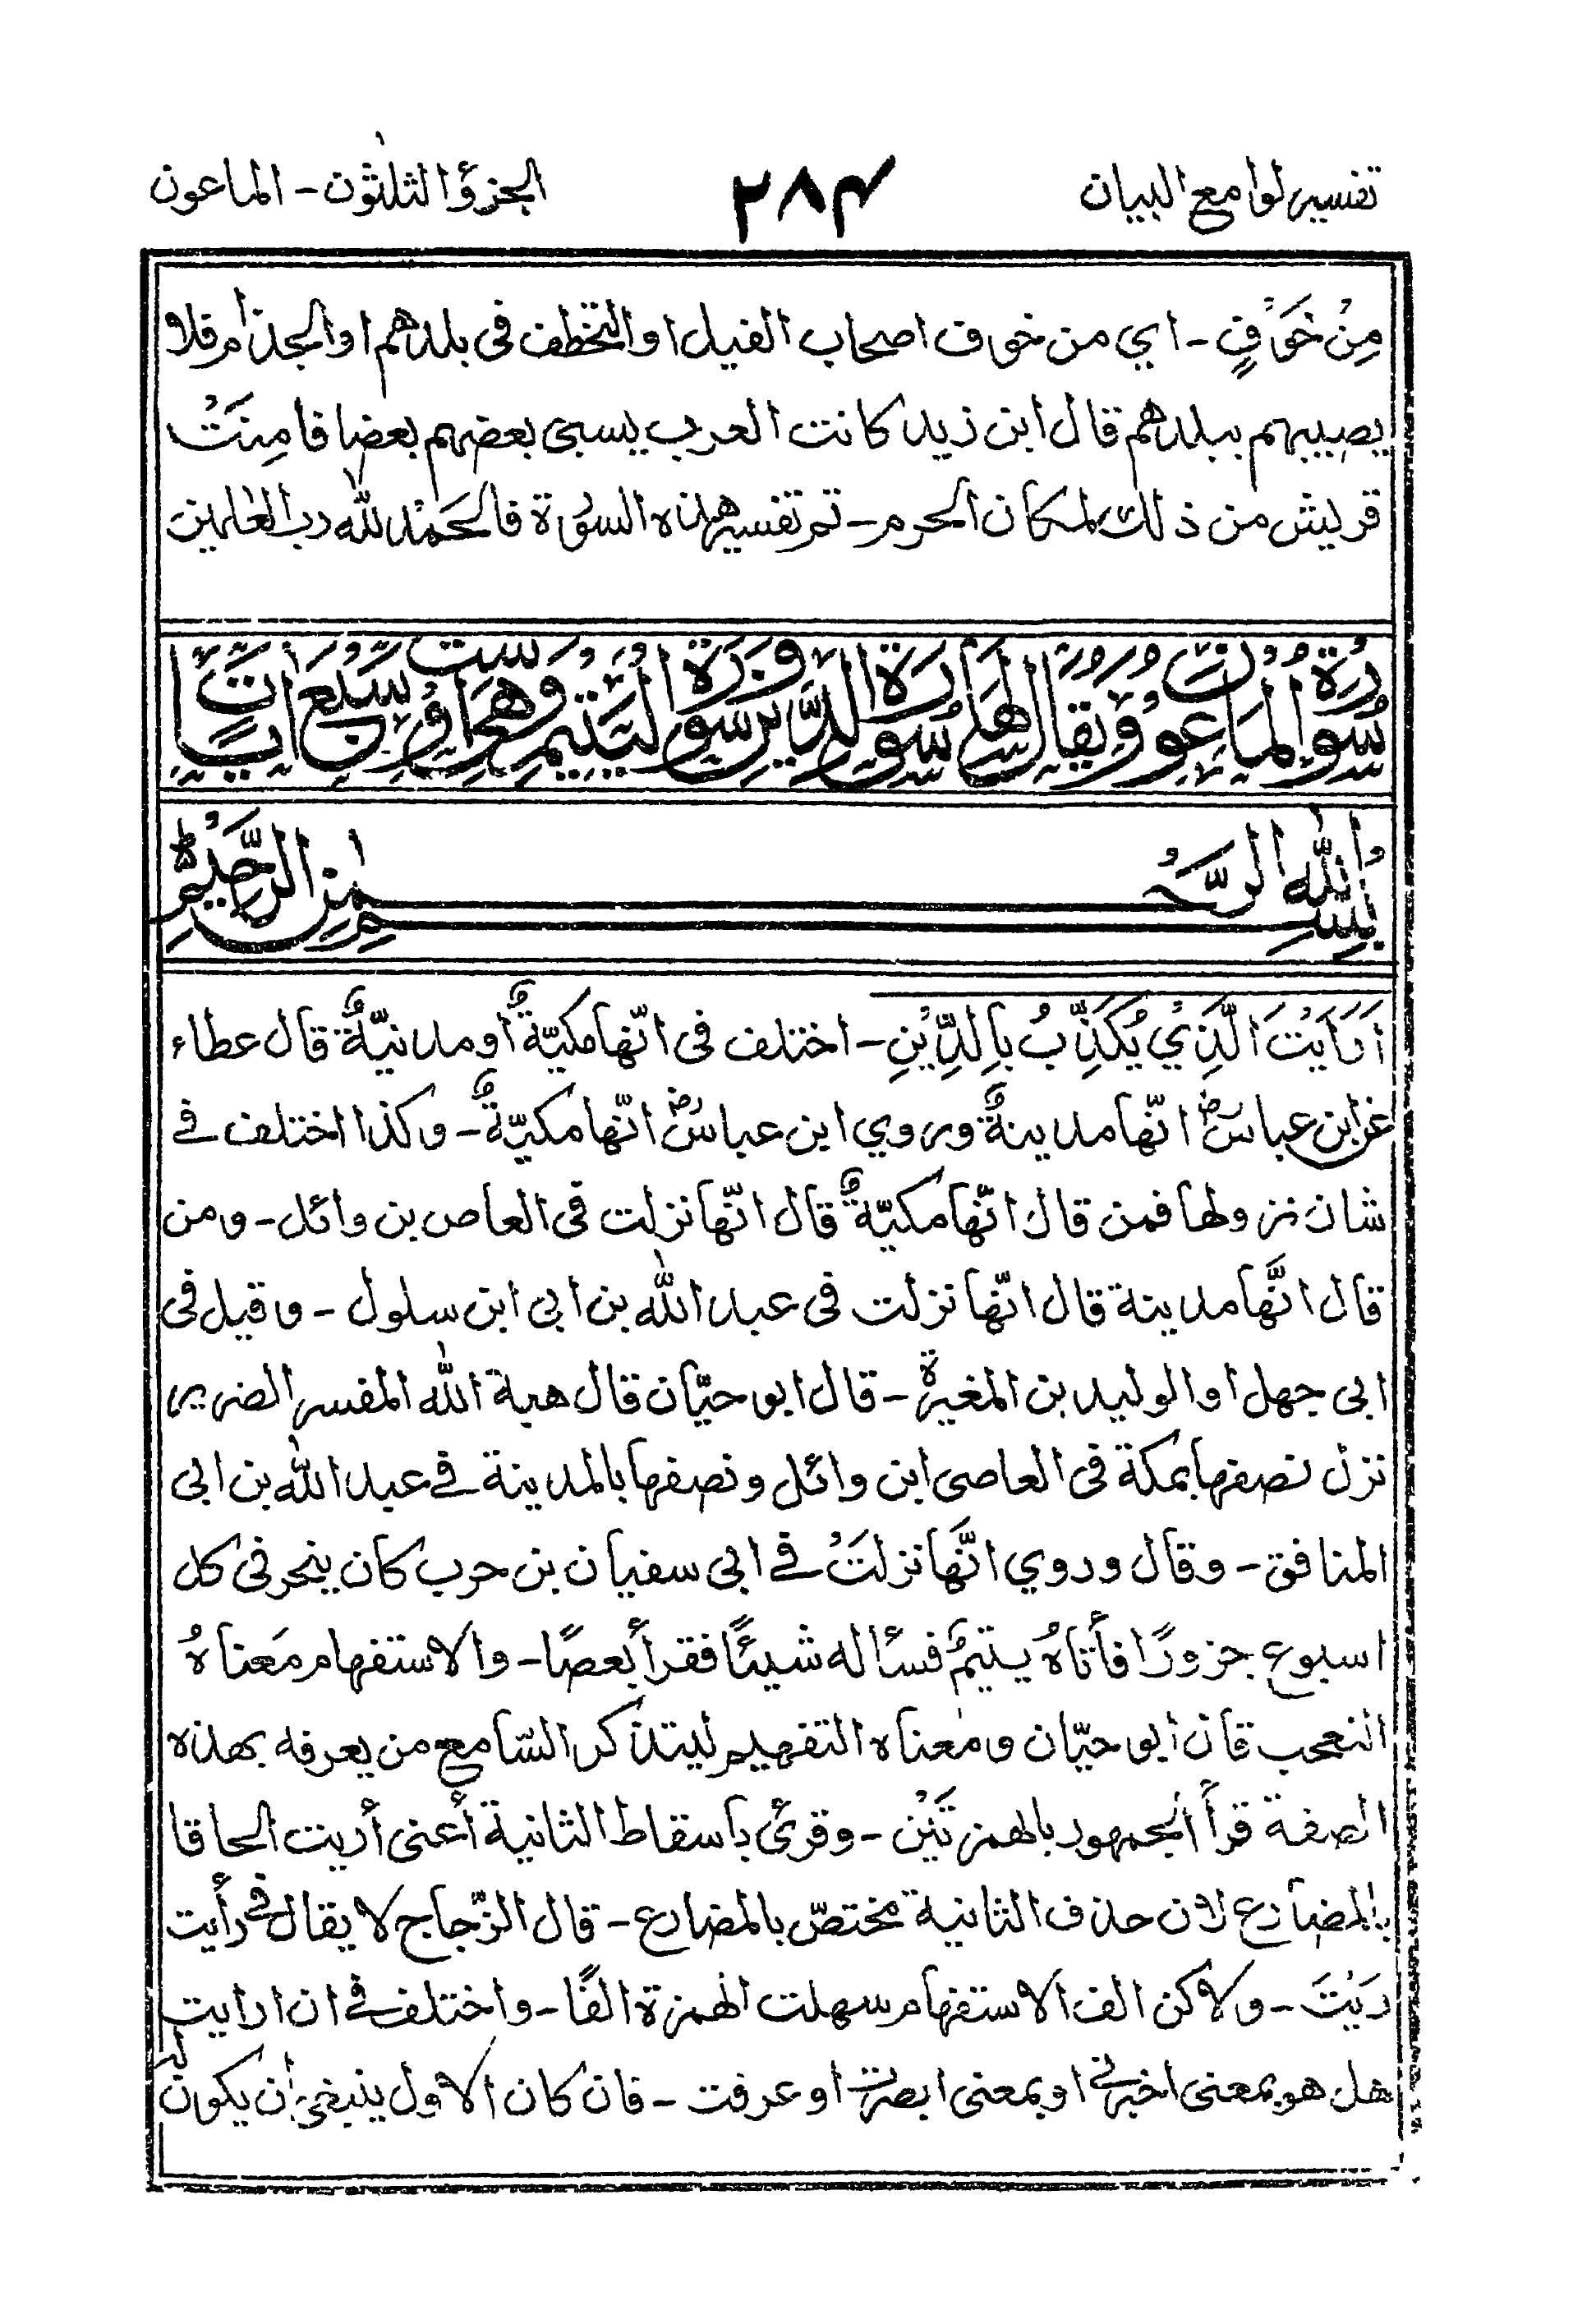 تفسير لوامع البيان
٢٨٣
الجزؤ الثلثون - الماعون
مِنْ خَوْفٍ - اي من خوف اصحاب الفيل او التخطف فى بلدهم او الجذام فلا
يصيبهم ببلدهم قال ابن زيد كانت العرب يسبى بعضهم بعضا فامِنَتْ
قريش من ذلك لمكان الحرم - تم تفسير هذه السوْرة فالحمْد لله رب العٰلمين
سُورة الماعون ويقال لها سورة الدين وسورة اليتيم وهي ست او سبع اٰيات
بسم الله الرحمٰن الرحيم
أَرَأَيْتَ الَّذِيْ يُكَذِّبُ بِالدِّيْنِ - اختلف فى انّها مكيّةٌ أو مدنيّةٌ قال عطاء
عن ابن عباسؓ انّها مدينةٌ وروي ابن عباسؓ انّها مكيّةٌ - وكذا اختلف في
شان نزولها فمن قال انّها مكيّةٌ قال انّها نزلت فى العاص بن وائل - ومن
قال انَّها مدينة قال انّها نزلت فى عبد الله بن ابى ابن سلول - وقيل فى
ابى جهل او الوليد بن المغيرة - قال ابو حيّان قال هبة الله المفسر الضرير
نزل نصفها بمكة فى العاصى ابن وائل ونصفها بالمدينة في عبد الله بن ابى
المنافق - وقال وروي انَّها نزلَتْ في ابى سفيان بن حرب كان ينحر فى كل
اسبوع جزورًا فأتاهُ يتيمٌ فسئاله شيئًا فقرأ بعصًا - والاستفهام مَعناهُ
التعجب قال ابو حيّان ومعناه التفهيم ليتذكر السّامع من يعرفه بهذه
الصفة قرأ الجمهور بالهمزتَيْن - وقرئ باسقاط الثانية أعنى أريت الحاقا
بالمضارع لان حذف الثانية مختصّ بالمضارع - قال الزّجاج لا يقال في رأيت
رَيْتَ - ولاكن الف الاستفهام سهلت الهمزة الفًا - واختلف في ان ارايت
هل هو بمعنى اخبرنى او بمعنى ابصرت او عرفت - فان كان الاول ينبغى أن يكون له